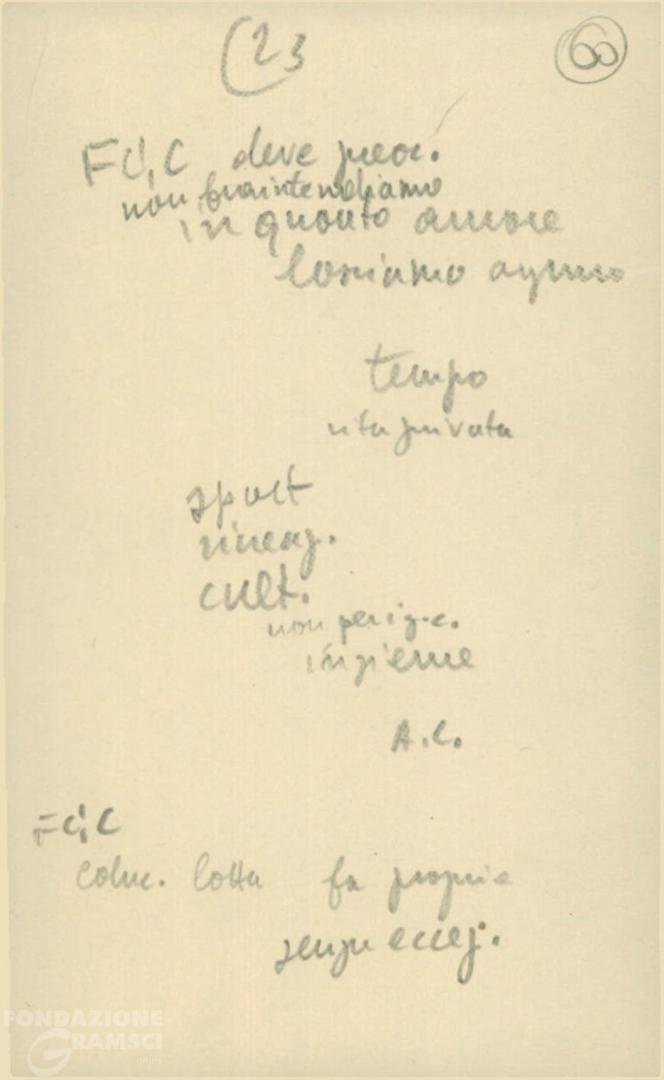 23
60
FGC deve preoc.
non fraintendiamo
in quanto amore
lasciamo
tempo
vita privata
sport
ricreaz.
cult.
non peric.
insieme
A.C.
FGC
lotta fa proprie
senza eccez.
FONDAZIONE
GRAMSCI